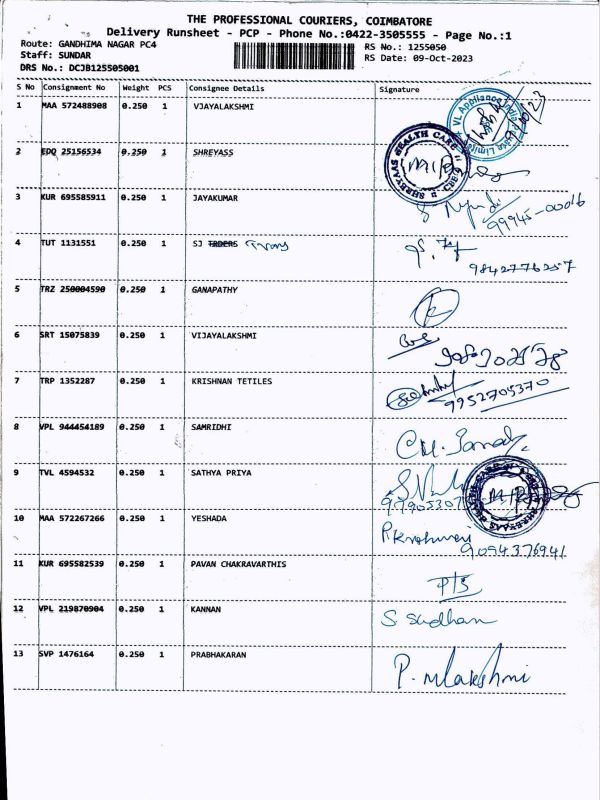 THE PROFESSIONAL COURIERS, COIMBATORE
Delivery Runsheet - PCP - Phone No.:0422-3505555 - Page No.:1
Route: GANDHIMA NAGAR PC4
RS No.: 1255050
Staff: SUNDAR
RS Date: 09-Oct-2023
DRS No.: DCJB125505001
S No Consignment No Weight PCS Consignee Details Signature
1 MAA 572488908 0.250 1 VJAYALAKSHMI
VL Appliance India Private Limited
2 EDQ 25156534 0.250 1 SHREYASS
SHREYAAS HEALTH CARE
3 KUR 695585911 0.250 1 JAYAKUMAR
99945-00016
4 TUT 1131551 0.250 1 SJ TRDERS
9842776257
5 TRZ 250004590 0.250 1 GANAPATHY
6 SRT 15075839 0.250 1 VIJAYALAKSHMI
7 TRP 1352287 0.250 1 KRISHNAN TETILES
9952705370
8 VPL 944454189 0.250 1 SAMRIDHI
9 TVL 4594532 0.250 1 SATHYA PRIYA
SHREYAAS HEALTH CARE
10 MAA 572267266 0.250 1 YESHADA
9094376941
11 KUR 695582539 0.250 1 PAVAN CHAKRAVARTHIS
12 VPL 219870904 0.250 1 KANNAN
S Sudhan
13 SVP 1476164 0.250 1 PRABHAKARAN